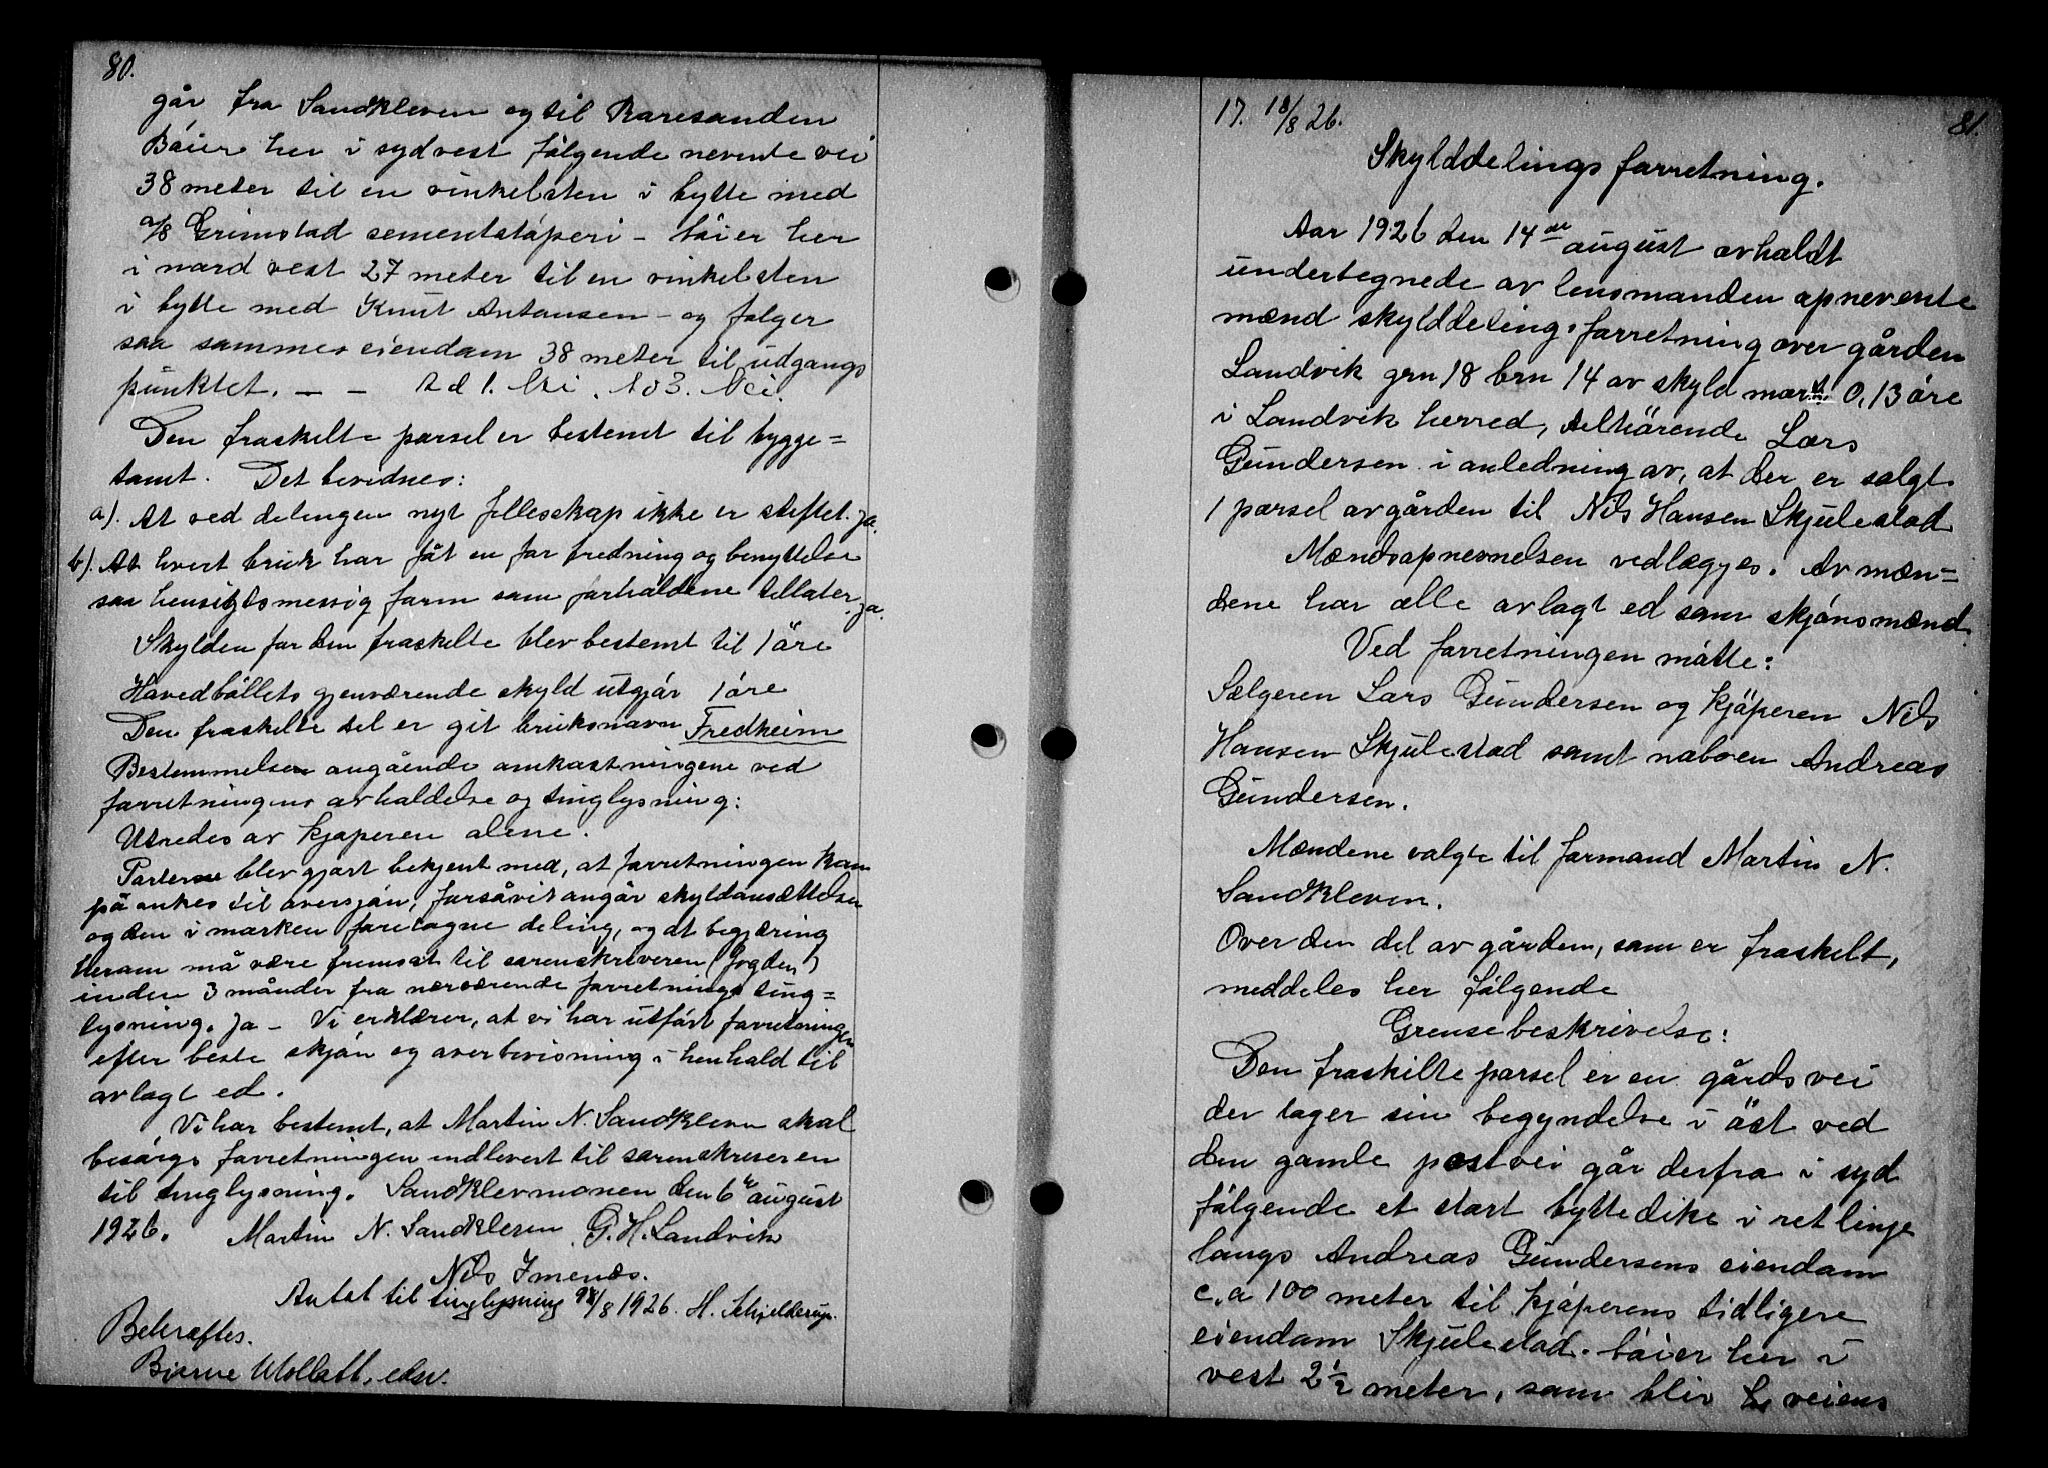 80.
går fra Sandkleven og til Raresanden
Bøier her i sydvest følgende nevnte vei
38 meter til en vinkelsten i bytte med
a/s Grimstad sementstøperi - bøier her
i nord vest 27 meter til en vinkelsten
i bytte med Knut Antonsen - og følger
saa sammes eiendom 38 meter til udgangs
punktet. — — Ad 1. Nei. Ad 3. Nei.
Den fraskilte parsel er bestemt til bygge=
tomt. Det bevidnes:
a). At ved delingen nyt fellesskap ikke er stiftet. ja.
b). At hvert bruk har fåt en for fredning og benyttelse
saa hensigtsmessig form som forholdene tillater. ja.
Skylden for den fraskilte blev bestemt til 1 øre
Hovedbøllets gjenværende skyld utgjør 1 øre
Den fraskilte del er git bruksnavn Fredheim
Bestemmelsen angående omkostningene ved
forretningens avholdelse og tinglysning:
Utredes av kjøperen alene.
Parterne blev gjort bekjent med, at forretningen kan
på ankes til overskjøn, forsåvit angår skyldansættelsen
og den i marken foretagne deling, og at begjæring
herom må være fremsat til sorenskriveren (fogden)
inden 3 månder fra nærværende forretnings ting=
lysning. ja - Vi erklærer, at vi har utført forretningen
efter beste skjøn og overbevisning i henhold til
avlagt ed.
Vi har bestemt, at Martin N. Sandkleven skal
besørge forretningen indlevert til sorenskriveren
til tinglysning. Sandklevmonen den 6te august
1926. Martin N. Sandkleven G. H. Landvik
Nils Imenes.
Antat til tinglysning /8 1926. H. Schjelderup.
Bekræftes.
Bjarne Mollatt, edsv.
17. 18/8 26.
81.
Skylddelings forretning.
Aar 1926 den 14de august avholdt
undertegnede av lensmanden opnevnte
mænd skylddelings forretning over gården
Landvik grn 18 brn 14 av skyld mark 0,13 øre
i Landvik herred, tilhørende Lars
Gundersen i anledning av, at der er solgt
1 parsel av gården til Nils Hansen Skjulestad
Mændsopnevnelsen vedlægges. Av mæn=
dene har alle avlagt ed som skjønsmænd.
Ved forretningen møtte:
Sælgeren Lars Gundersen og kjøperen Nils
Hansen Skjulestad samt naboen Andreas
Gundersen.
Mændene valgte til formand Martin N.
Sandkleven.
Over den del av gården, som er fraskilt,
meddeles her følgende
Grensebeskrivelse:
Den fraskilte parsel er en gårdsvei
der tager sin begyndelse i øst ved
den gamle postvei går derfra i syd
følgende et stort byttedike i ret linje
langs Andreas Gundersens eiendom
c.a 100 meter til kjøperens tidligere
eiendom Skjulestad. bøier her i
vest 2 1/2 meter, som blir veiens